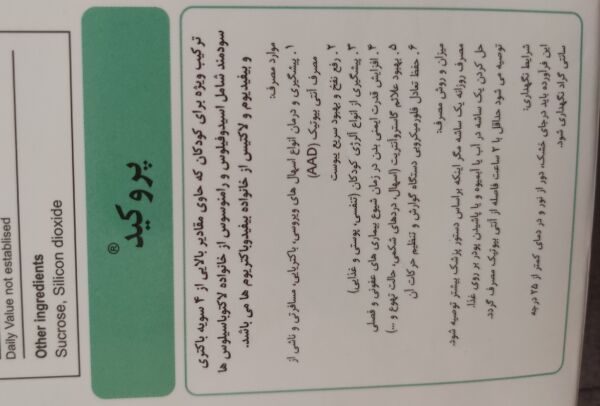 Daily Value not established
Other ingredients
Sucrose, Silicon dioxide
پروکید®
ترکیب ویژه برای کودکان که حاوی مقادیر بالایی از ۴ سویه باکتری
سودمند شامل اسیدوفیلوس و رامنوسوس از خانواده لاکتوباسیلوس ها
و بیفیدیوم و لاکتیس از خانواده بیفیدوباکتریوم ها می باشد.
موارد مصرف:
۱. پیشگیری و درمان انواع اسهال های ویروسی، باکتریایی، مسافرتی و ناشی از
مصرف آنتی بیوتیک (AAD)
۲. رفع نفخ و بهبود سریع یبوست
۳. پیشگیری از انواع آلرژی کودکان (تنفسی، پوستی و غذایی)
۴. افزایش قدرت ایمنی بدن در زمان شیوع بیماری های عفونی و فصلی
۵. بهبود علائم گاستروآنتریت (اسهال، دردهای شکمی، حالت تهوع و ...)
۶. حفظ تعادل فلورمیکروبی دستگاه گوارش و تنظیم حرکات آن
میزان و روش مصرف:
مصرف روزانه یک ساشه مگر اینکه براساس دستور پزشک بیشتر توصیه شود.
حل کردن یک ساشه در آب یا آبمیوه و یا پاشیدن پودر بر روی غذا.
توصیه می شود حداقل با ۲ ساعت فاصله از آنتی بیوتیک مصرف گردد.
شرایط نگهداری:
این فرآورده باید درجای خشک، دور از نور و در دمای کمتر از ۲۵ درجه
سانتی گراد نگهداری شود.